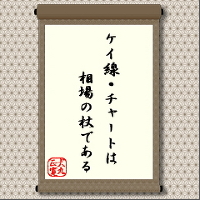 ケイ線・チャートは
相場の杖である